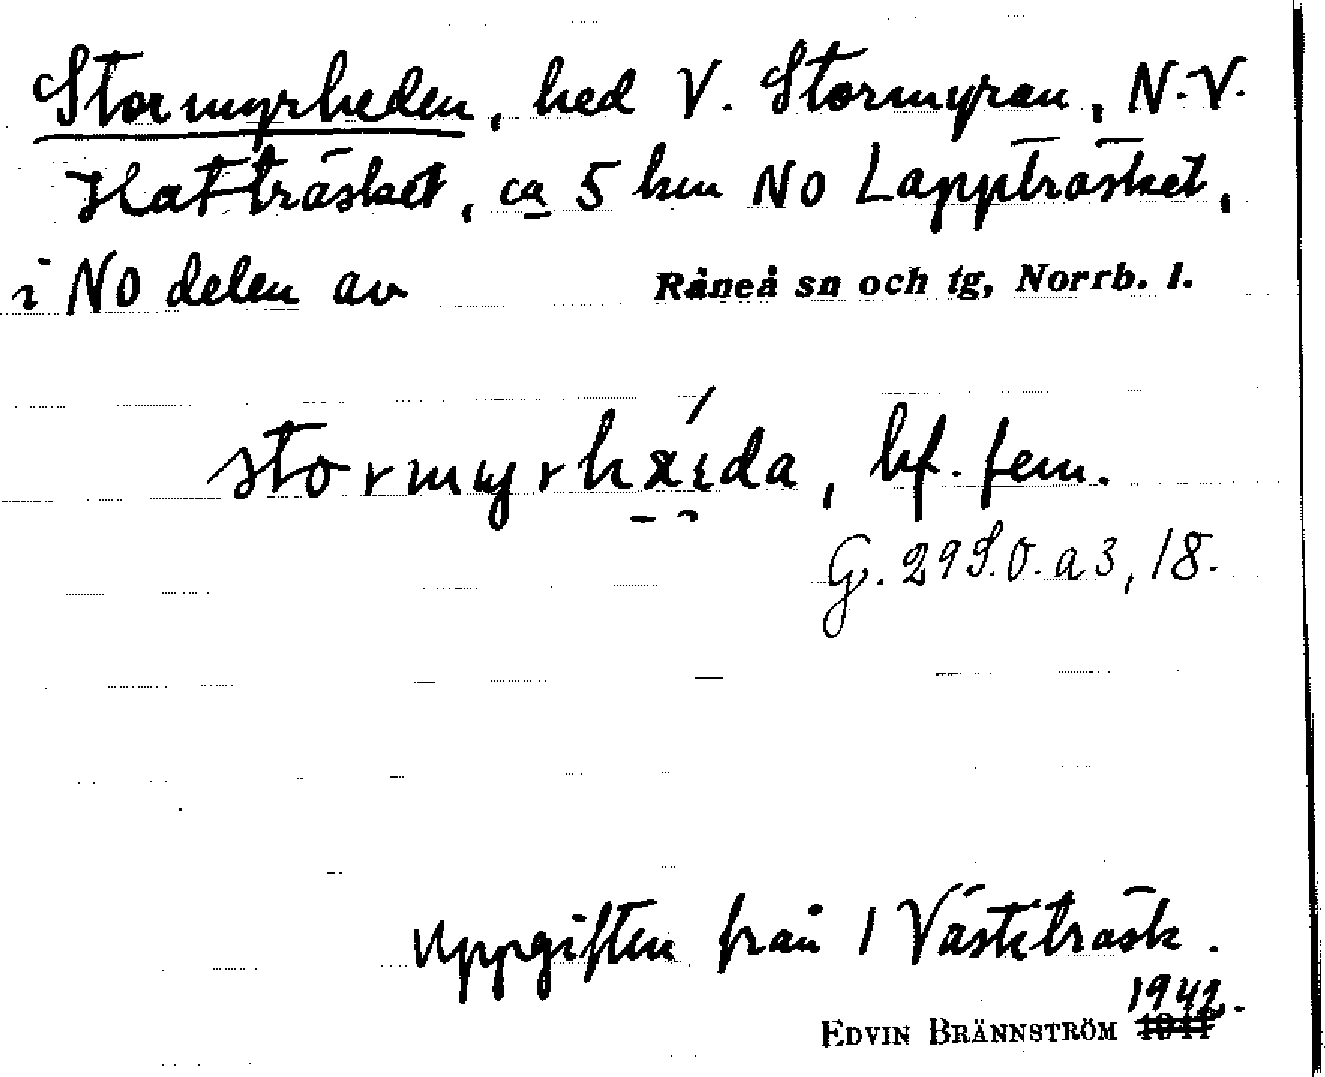 Stormyrheden, hed V. Stormyran, N.V.
Katträsket, ca 5 km NO Lappträsket,
i NO delen av Råneå sn och tg, Norrb. l.
stormyrhäida, bf. fem.
G. 29 S.O. a 3, 18.
Uppgiften från 1 Västiträsk.
1942.
EDVIN BRÄNNSTRÖM 1941